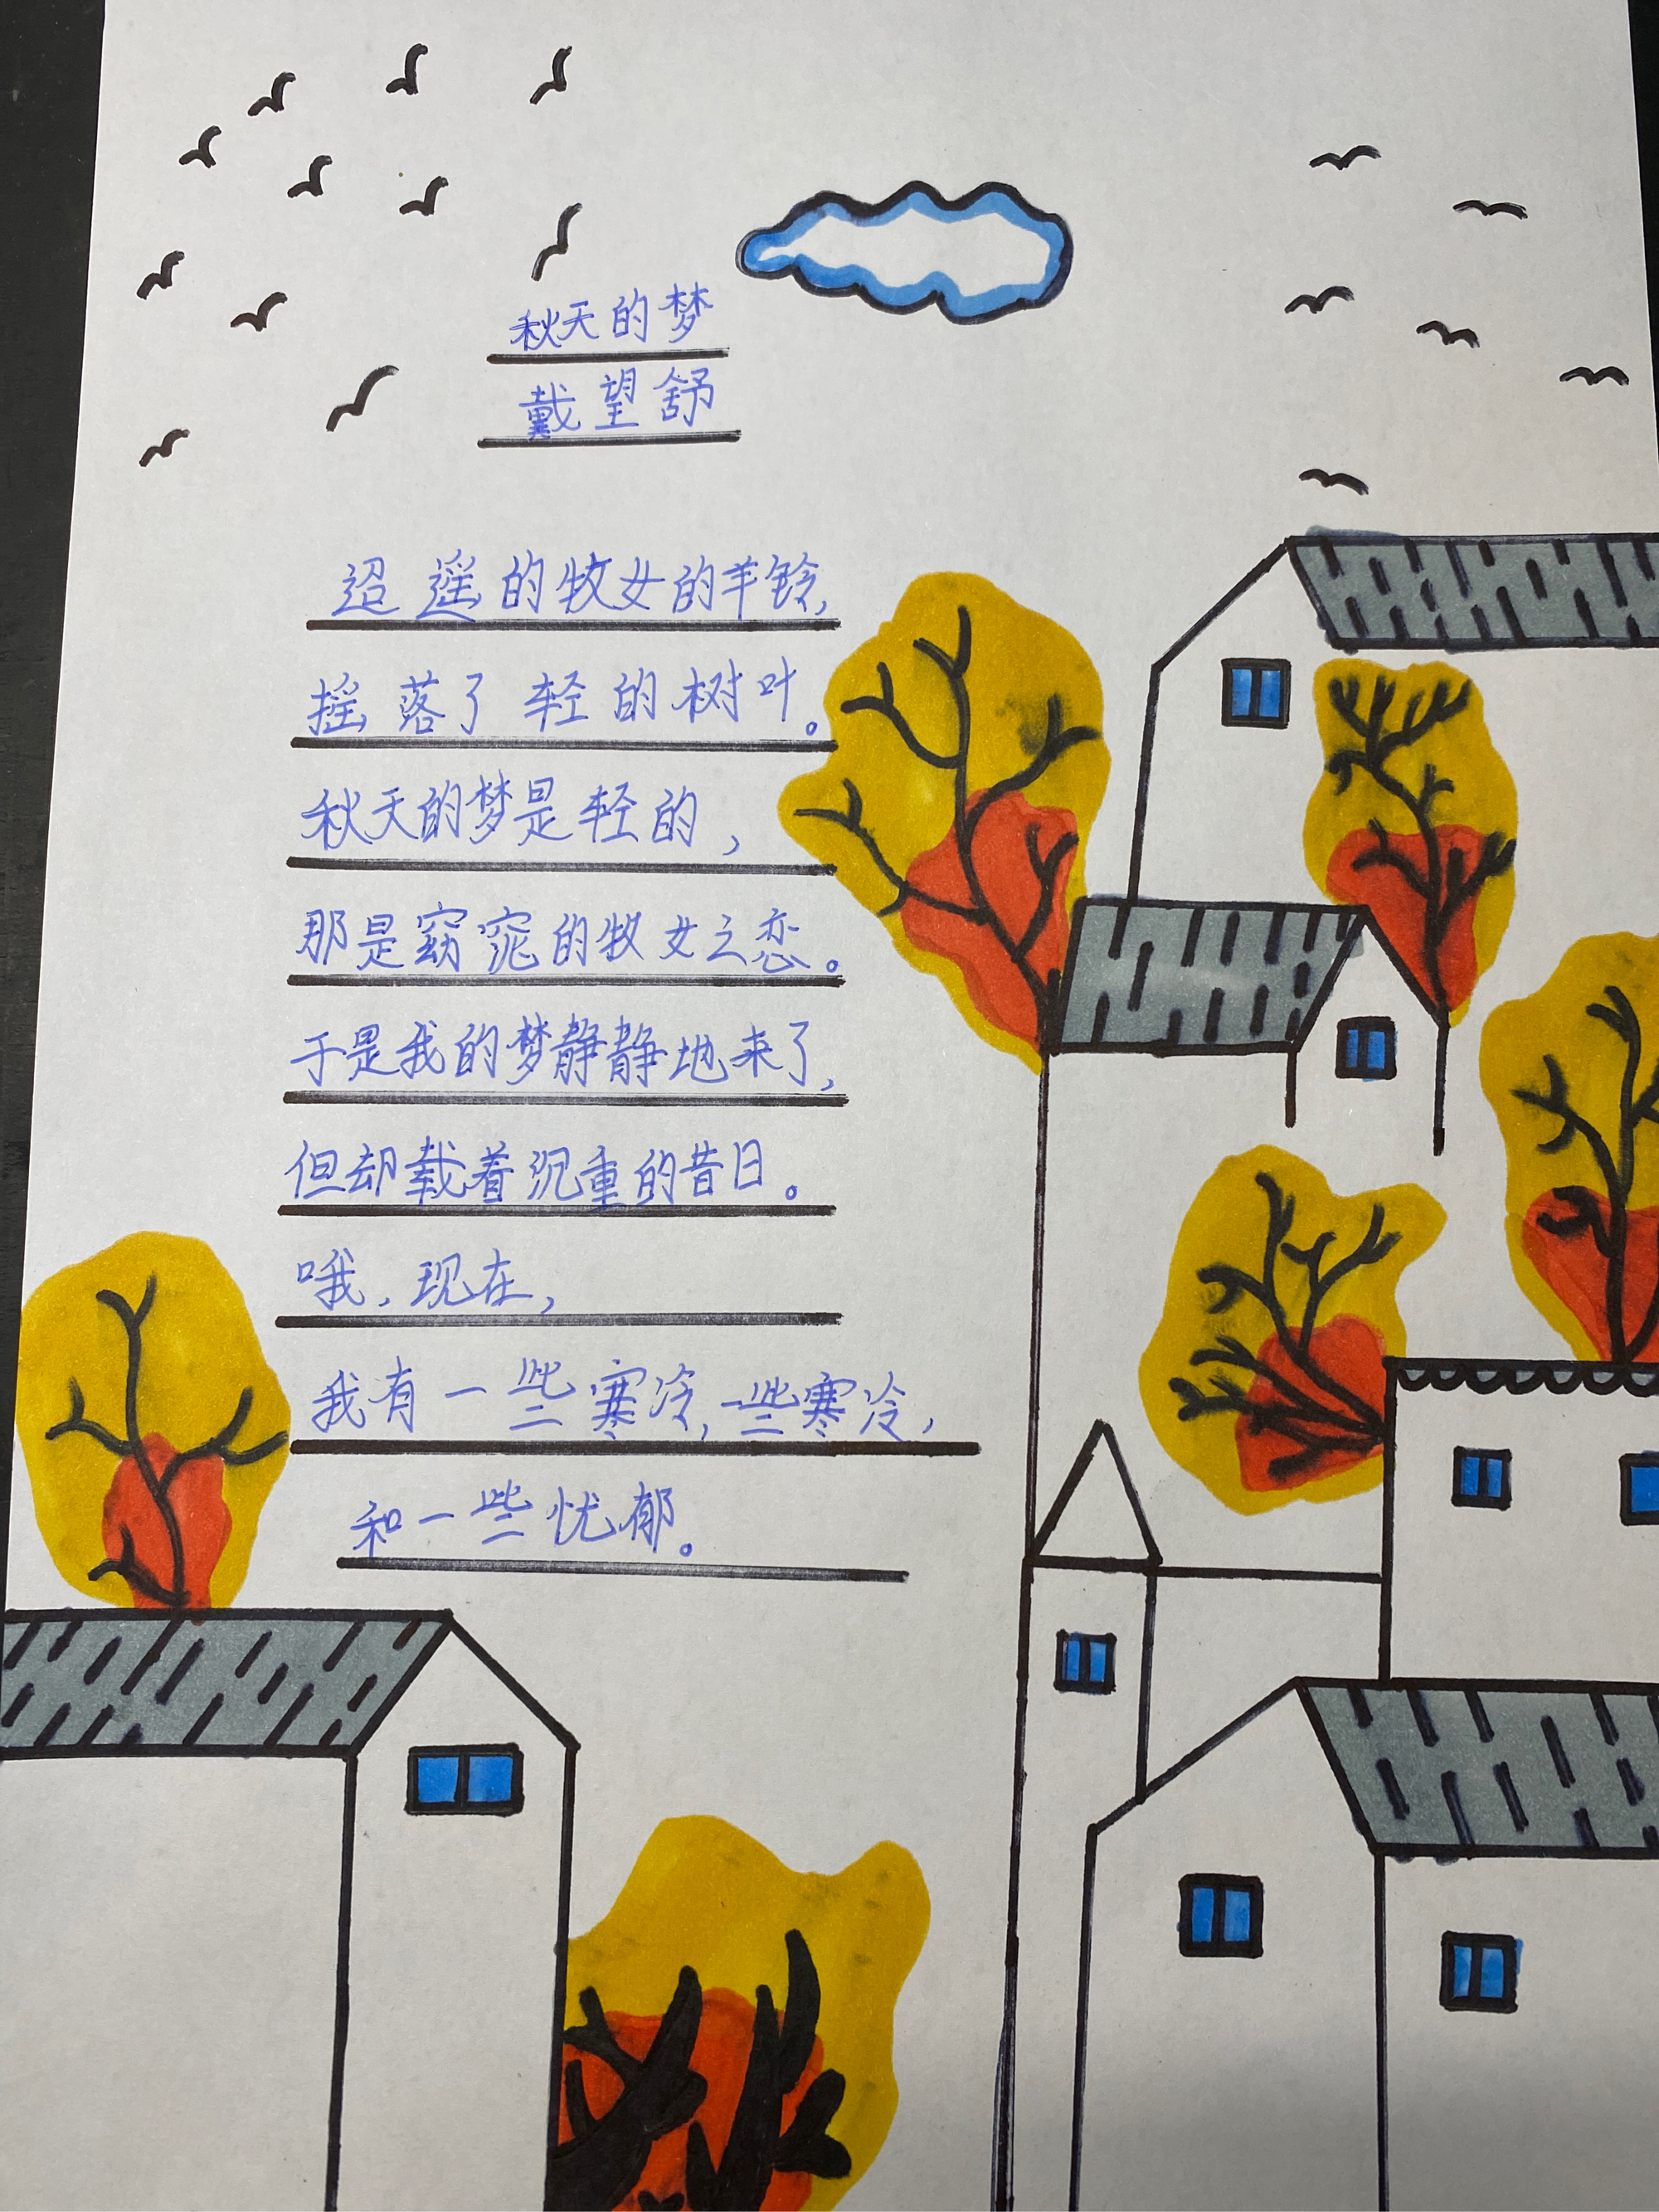 秋天的梦
戴望舒
迢遥的牧女的羊铃,
摇落了轻的树叶。
秋天的梦是轻的,
那是窈窕的牧女之恋。
于是我的梦静静地来了,
但却载着沉重的昔日。
哦,现在,
我有一些寒冷,一些寒冷,
和一些忧郁。